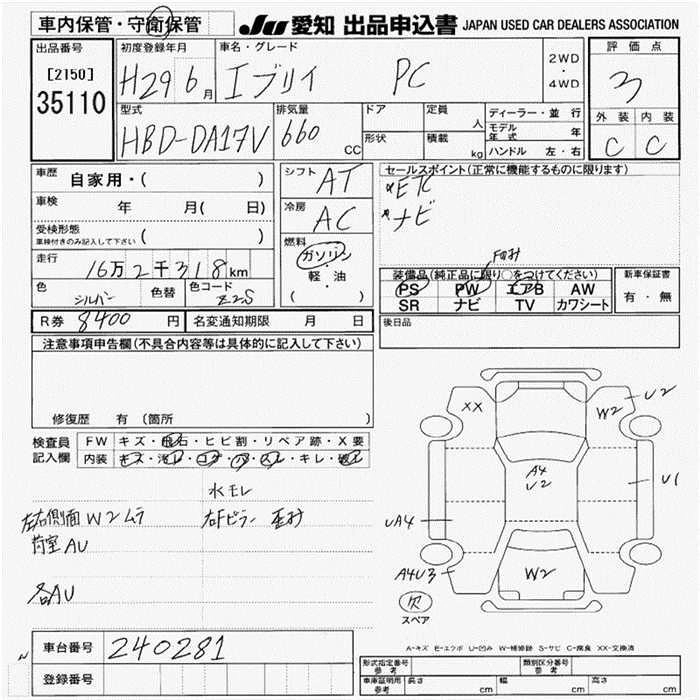 車内保管・守衛保管
JU 愛知 出品申込書 JAPAN USED CAR DEALERS ASSOCIATION
出品番号 初度登録年月 車名・グレード 2WD・4WD 評価点
[2150]
35110 H29 6月 エブリイ PC 3
型式 排気量 ドア 定員 人 ディーラー・並行 外装 内装
HBD-DA17V 660 CC 形状 積載 kg モデル年式 年 C C
ハンドル 左・右
車歴 自家用・( )
シフト AT
セールスポイント(正常に機能するものに限ります)
車検 年 月( 日)
冷房 AC
ETC
ナビ
受検形態 車検付きのみ記入して下さい ( )
燃料 ガソリン・軽・油 ( )
走行 16万2千318km
装備品(純正品に限り○をつけてください) 新車保証書
色 シルバー 色替 色コード Z2S
PS PW エアB AW 有・無
SR ナビ TV カワシート
R券 8400 円 名変通知期限 月 日
後日品
注意事項申告欄(不具合内容等は具体的に記入して下さい)
修復歴 有 (箇所 )
検査員記入欄 FW キズ・飛石・ヒビ割・リペア跡・X要
内装 キズ・汚レ・コゲ・穴・スレ・キレ・破レ
水モレ
左右側面 W2ムラ 右Fピラー 歪み
荷室AU
各AU
XX
W2
U2
A4
U2
U1
UA4
A4U3
W2
欠
スペア
A-キズ E-エクボ U-凹み W-補修跡 S-サビ C-腐食 XX-交換済
車台番号 240281
登録番号
形式指定番号 参考 類別区分番号 参考
車庫証明用 参考 長さ cm 幅 cm 高さ cm